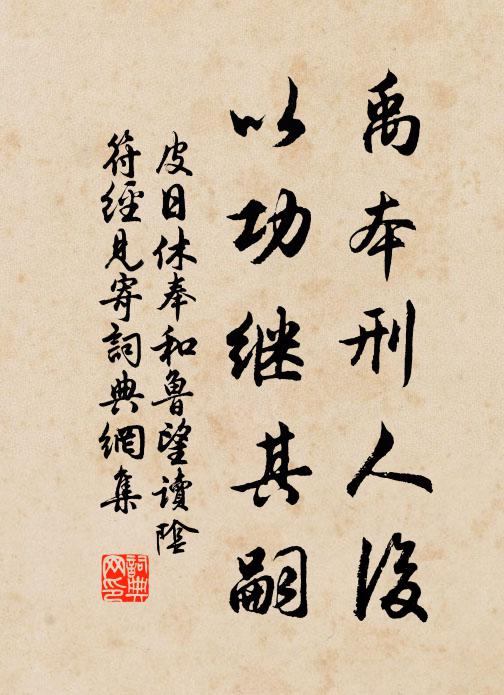 禹本刑人後
以功继其嗣
皮日休奉和魯望讀陰
符經見寄詞典網集
詞典
网印